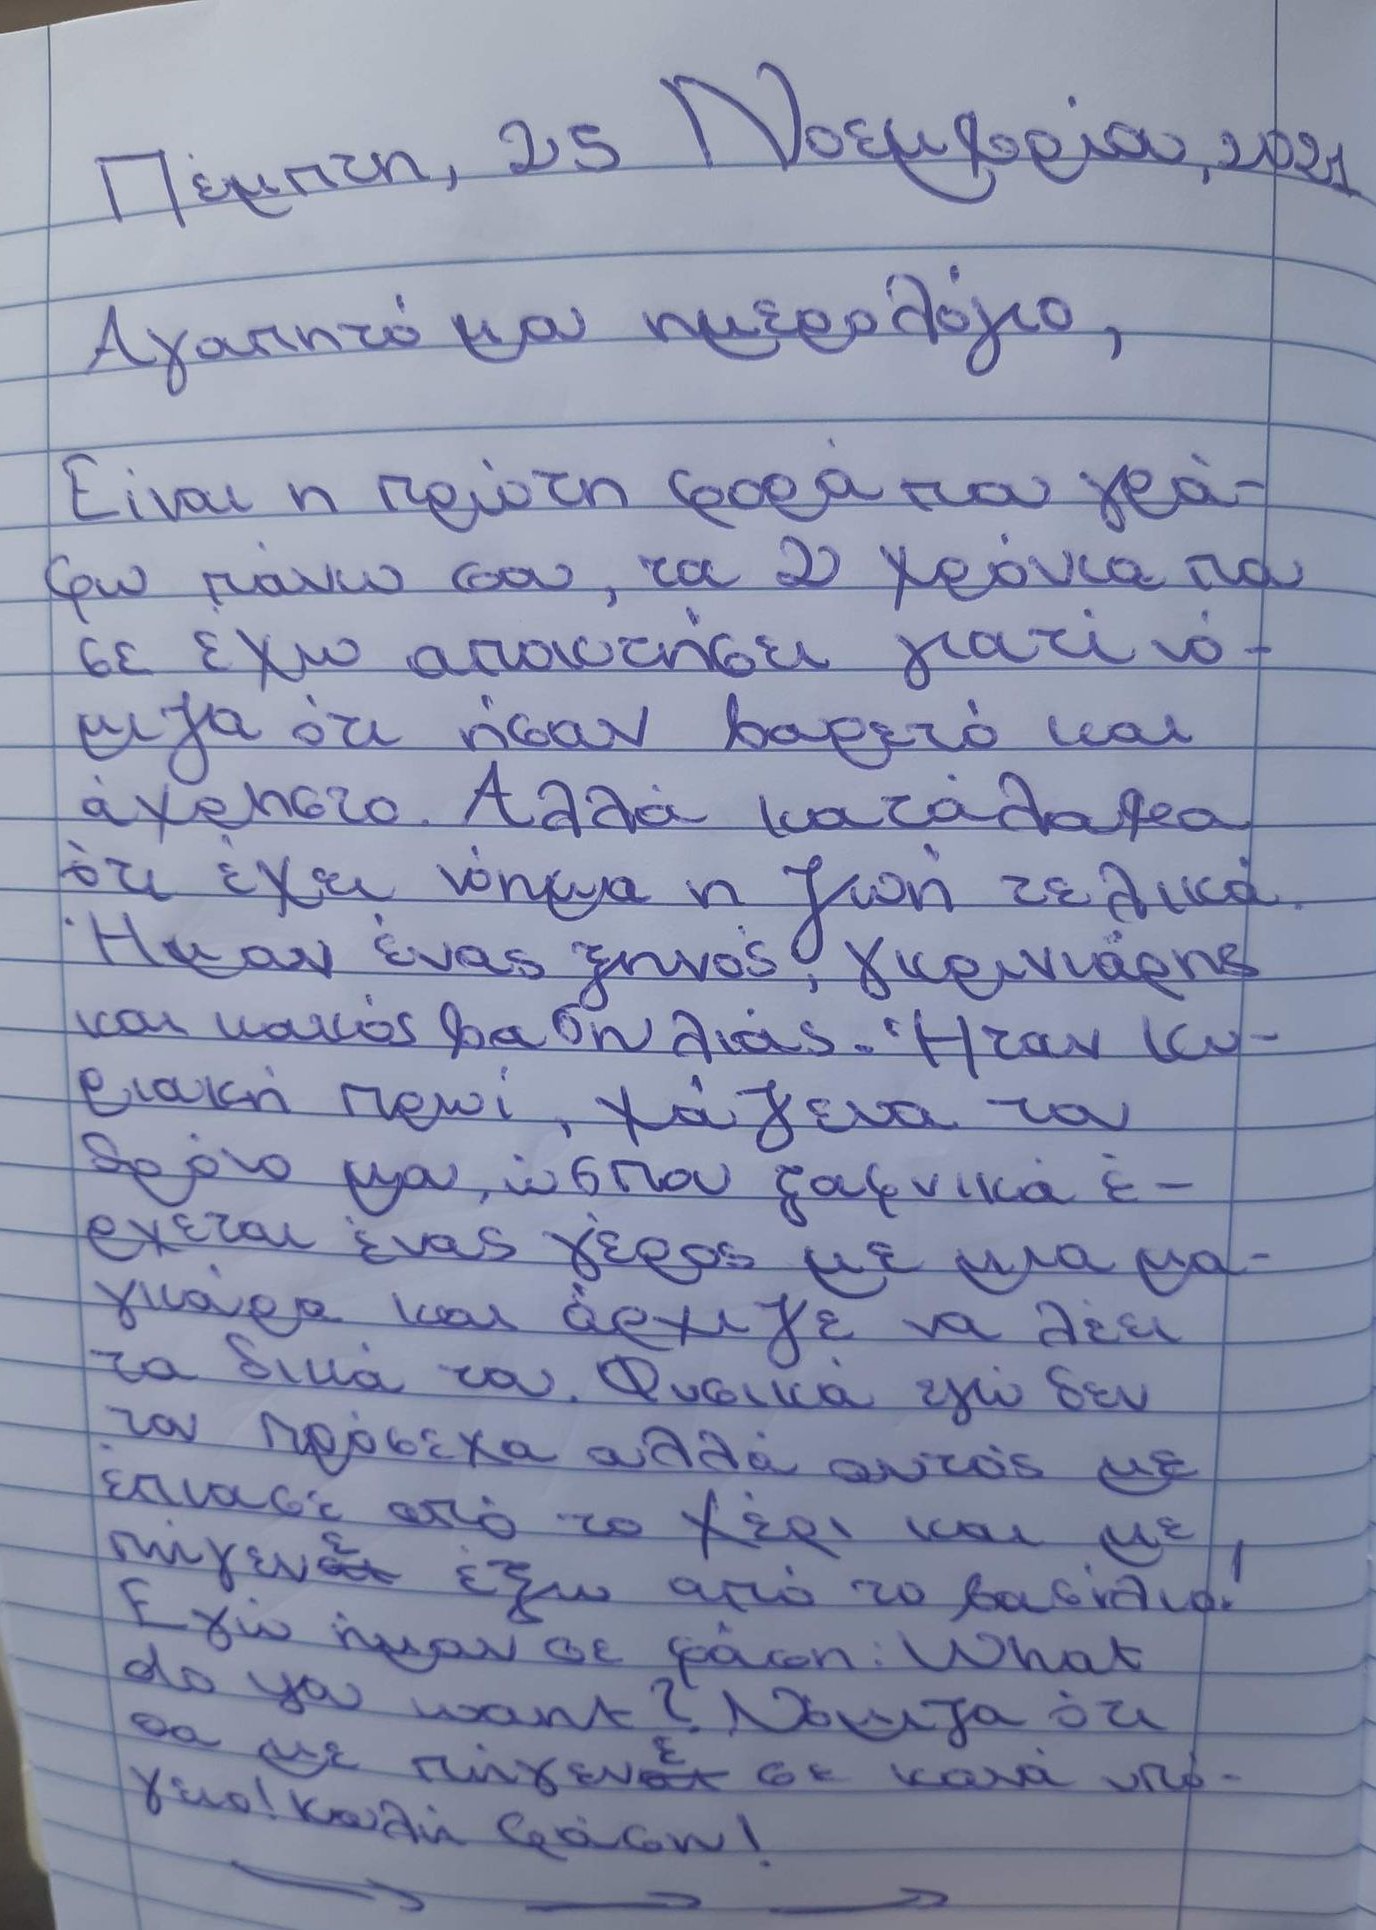 Πέμπτη, 25 Νοεμβρίου, 2021
Αγαπητό μου ημερολόγιο,
Είναι η πρώτη φορά που γρά-
φω πάνω σου, τα 2 χρόνια που
σε έχω αποκτήσει γιατί νό-
μιζα ότι ήσουν βαρετό και
άχρηστο. Αλλά κατάλαβα
ότι έχει νόημα η ζωή τελικά.
Ήμουν ένας ξηνός, γκρινιάρης
και κακός βασηλιάς. Ήταν Κυ-
ριακή πρωί, χάζευα το
θρόνο μου, ώσπου ξαφνικά έ-
ρχεται ένας γέρος με μια μα-
γκούρα και άρχιζε να λέει
τα δικά του. Φυσικά εγώ δεν
τον πρόσεχα αλλά αυτός με
έπιασε από το χέρι και με
πήγενε έξω από το βασίλειο!
Εγώ ήμουν σε φάση: What
do you want? Νόμιζα ότι
θα με πήγενε σε κανά υπό-
γειο! Καλή φάση!